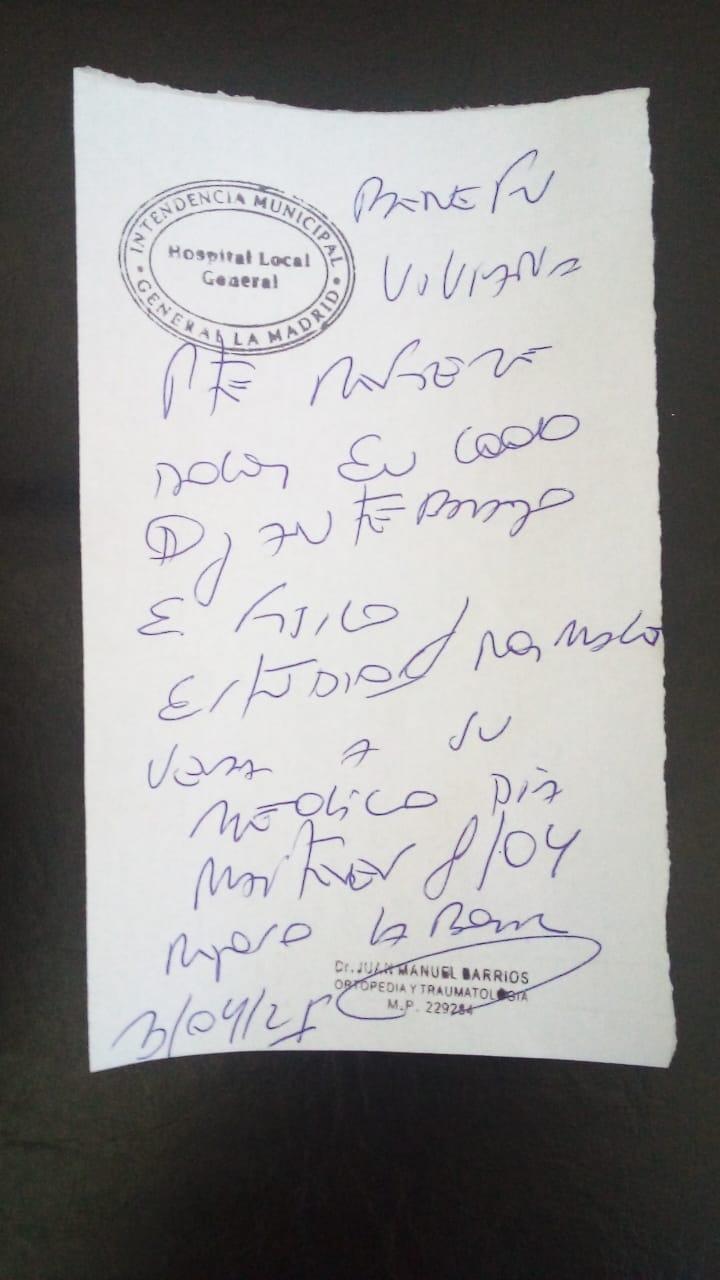 INTENDENCIA MUNICIPAL
Hospital Local
General
GENERAL LA MADRID
VIVIANA
PTE REFIERE
DOLOR EN CODO
D y ANTEBRAZO
E FISICO
ESTUDIADO y NORMALES
VERA A SU
MEDICO DIA
MARTES 8/04
REPOSO LABORAL
3/04/25
Dr. JUAN MANUEL BARRIOS
ORTOPEDIA Y TRAUMATOLOGIA
M.P. 229284